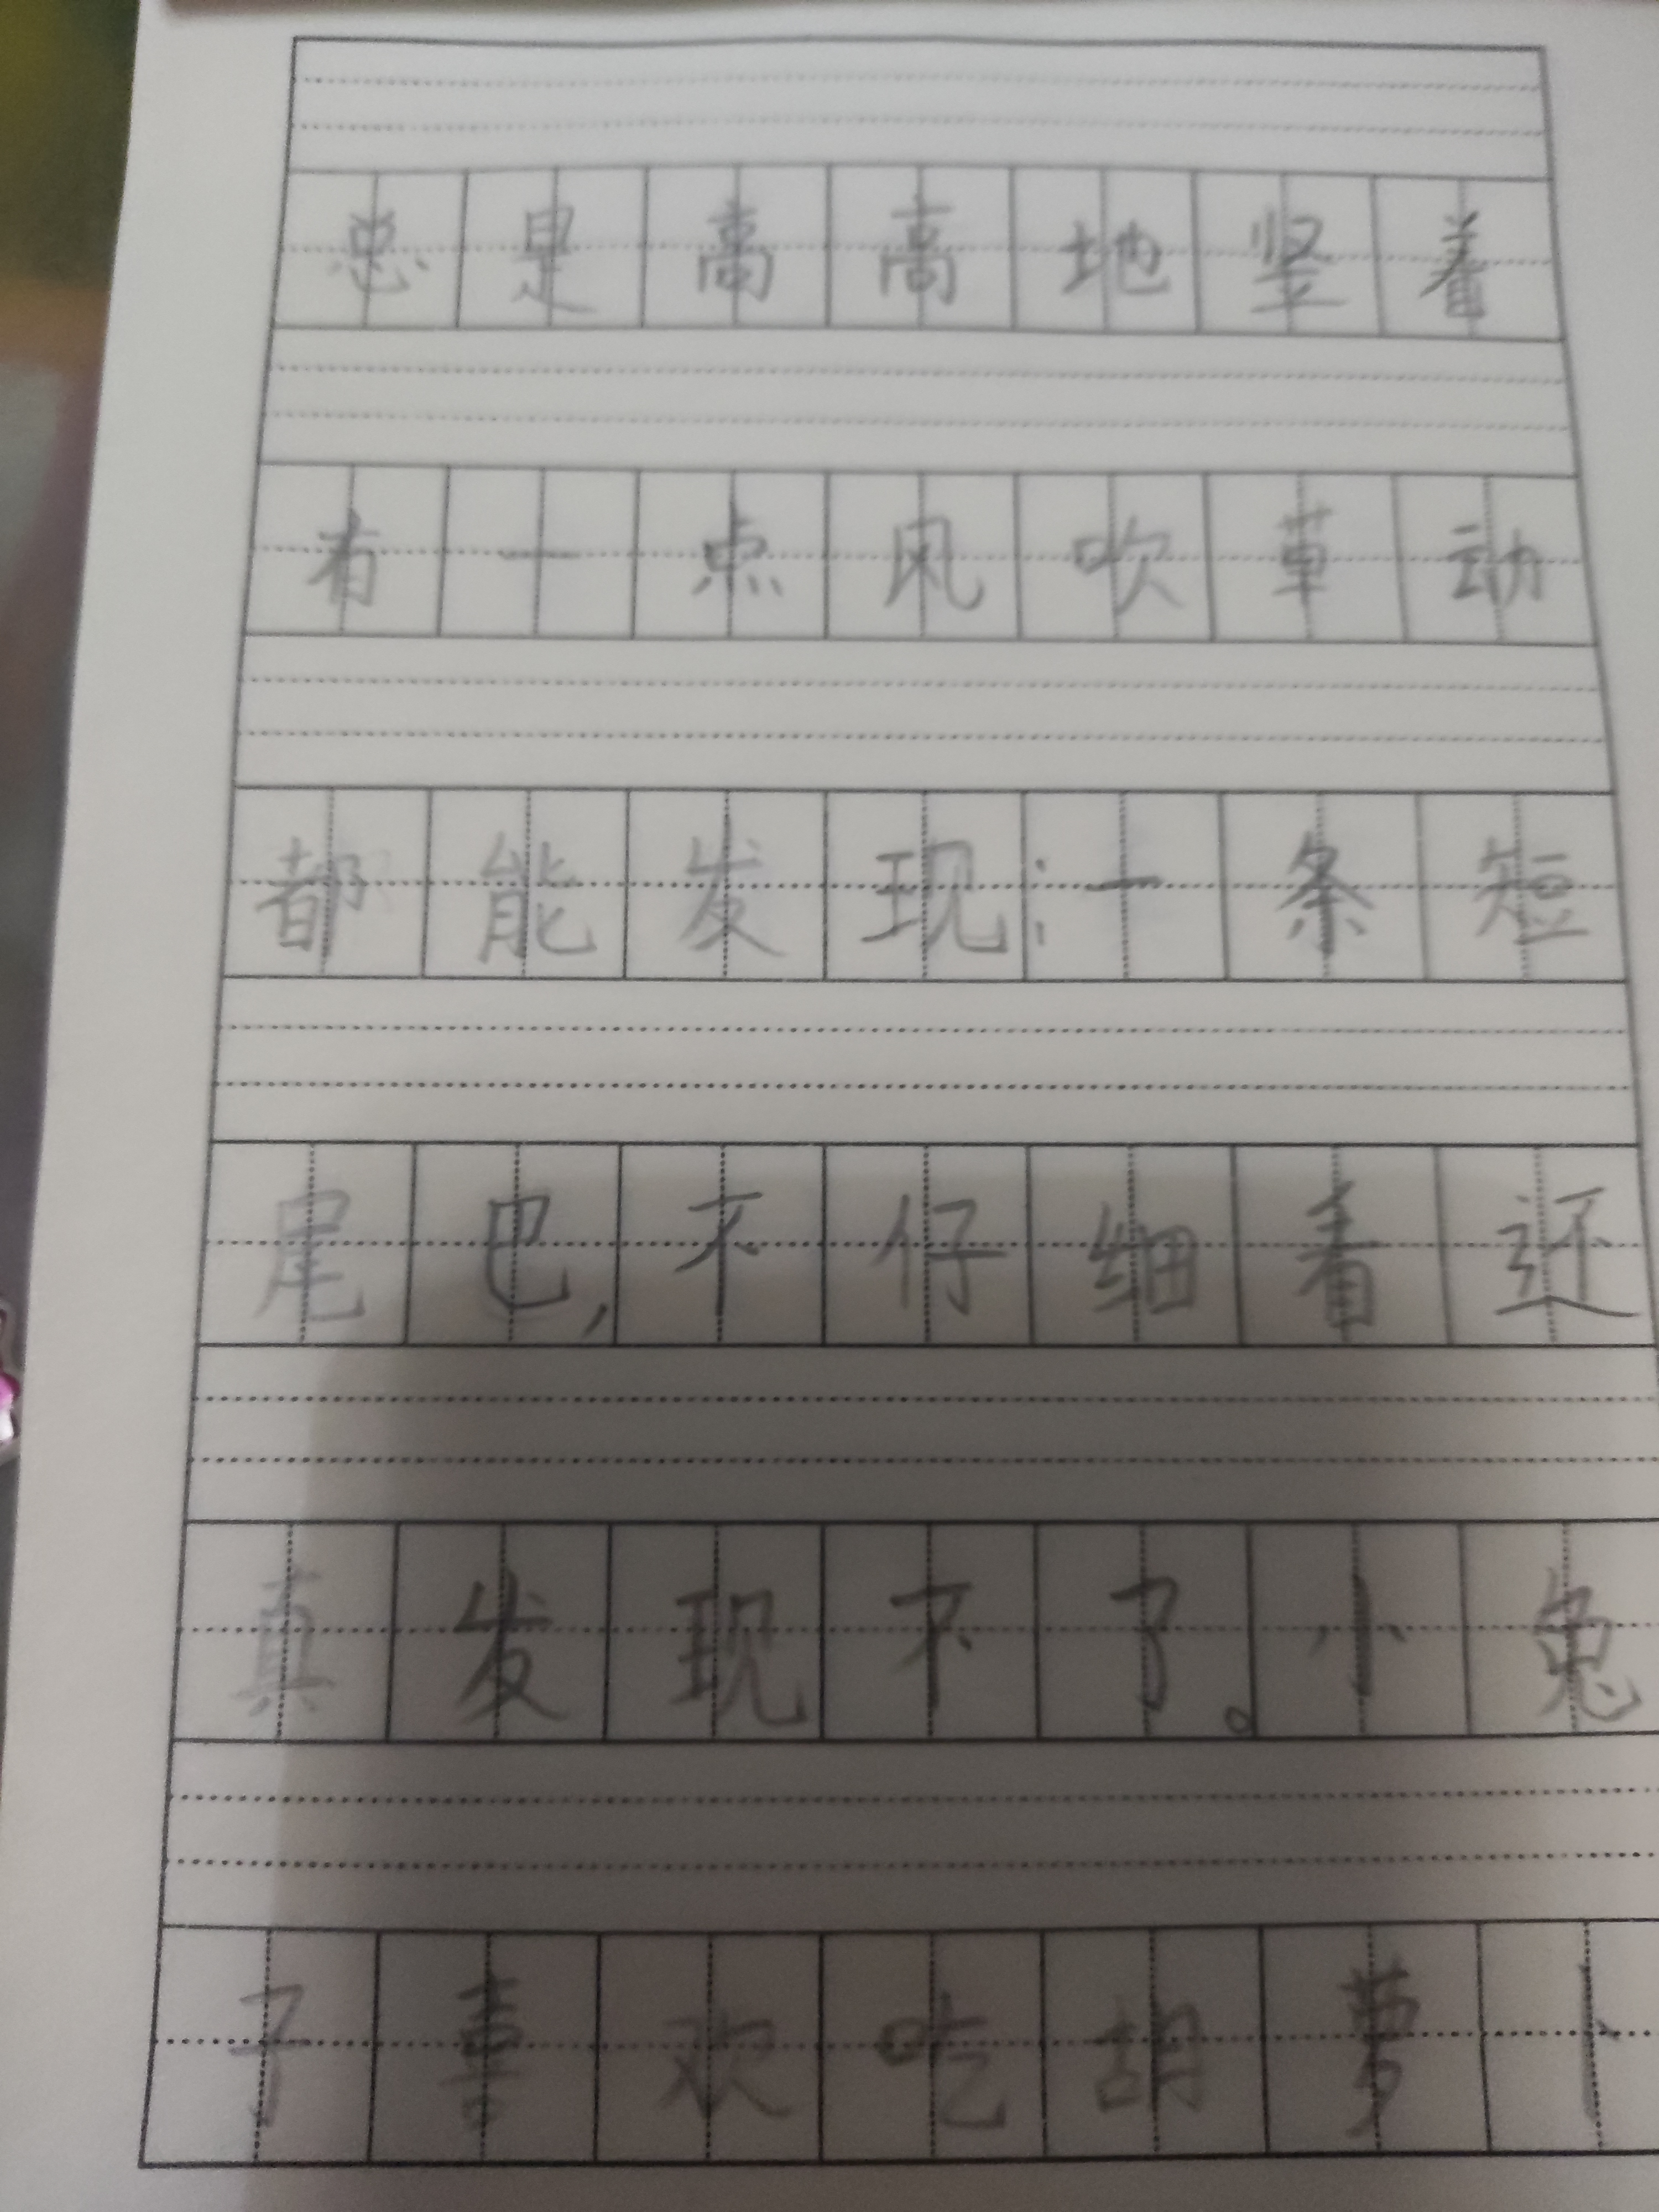 总是高高地竖着
有一点风吹草动
都能发现;一条短
尾巴,不仔细看还
真发现不了。小兔
子喜欢吃胡萝卜